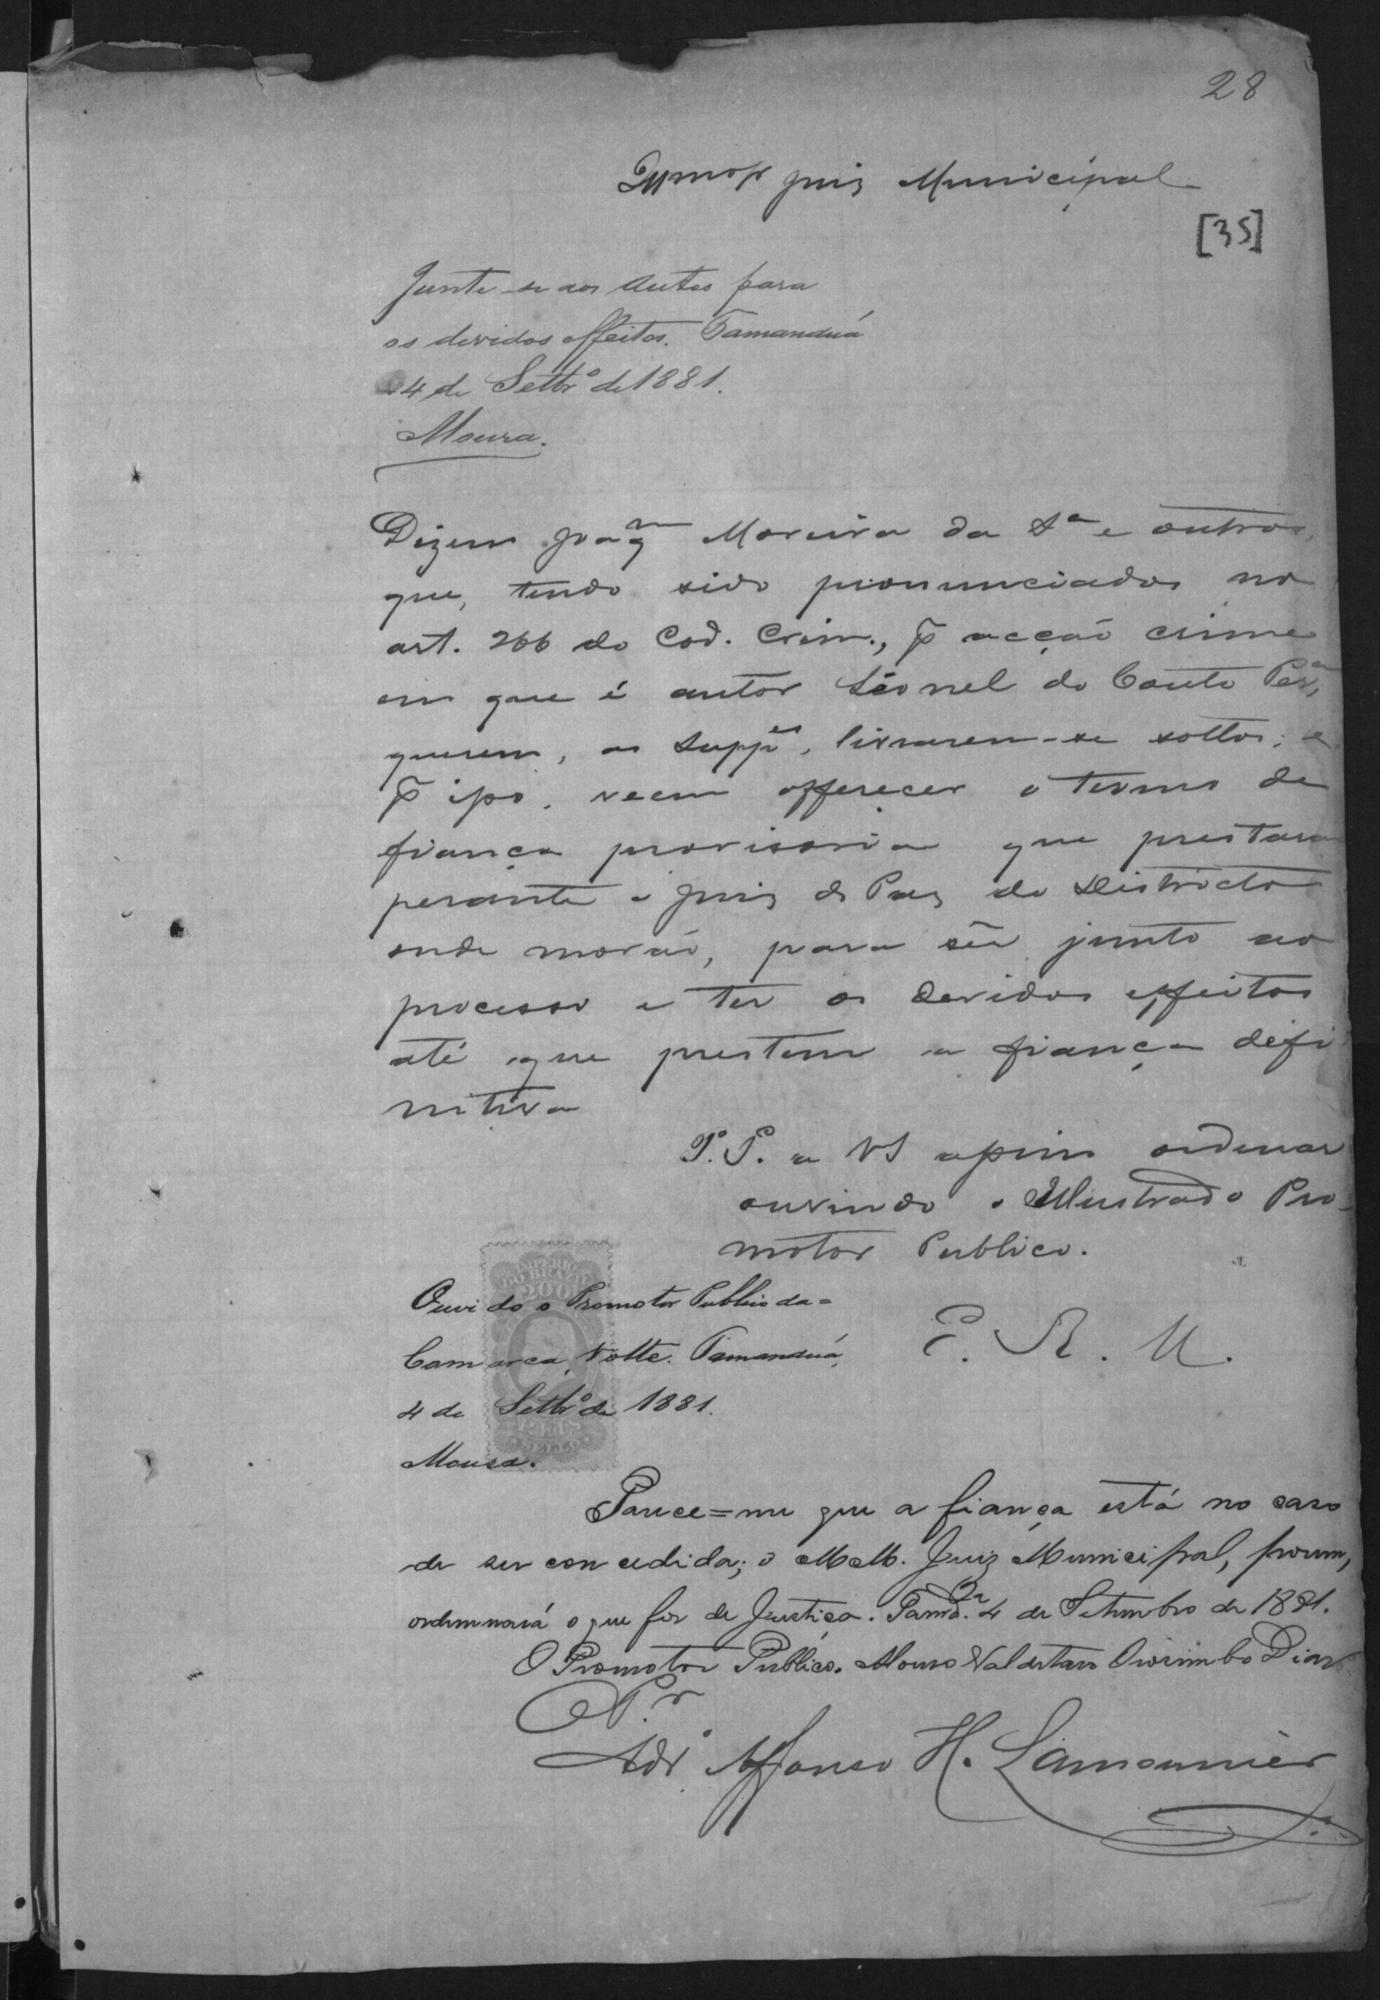 28
Illmo Sr Juiz Municipal
[35]
Junte-se aos Autos para
os devidos effeitos. Tamanduá
4 de Setbrº de 1881.
Moura.
Dizem Joaqm Moreira da Sª e outros,
que, tendo sido pronunciados no
art. 266 do Cod. Crim., p acção crime
em que é autor Leonel do Couto Perª,
querem, os Suppes, livrarem-se soltos; e
p isso, veem offerecer o termo de
fiança provisoria que prestarão
perante o Juiz de Paz do Districto
onde morão, para ser junto ao
processo e ter os devidos effeitos
até que prestem a fiança defi
nitiva
P. P. a VS assim ordenar
ouvindo o Illustrado Pro-
motor Publico.
Ouvido o Promotor Publico da=
Comarca, volte. Tamanduá,
4 de Setbrº de 1881.
Moura.
E. R. M.
Parece=me que a fiança está no caso
de ser concedida; o M.M. Juiz Municipal, porem,
ordennará o que for de Justiça. Tamd.ª 4 de Setembro de 1881.
O Promotor Publico. Dias
P.r
Adº Affonso H. Lamounier